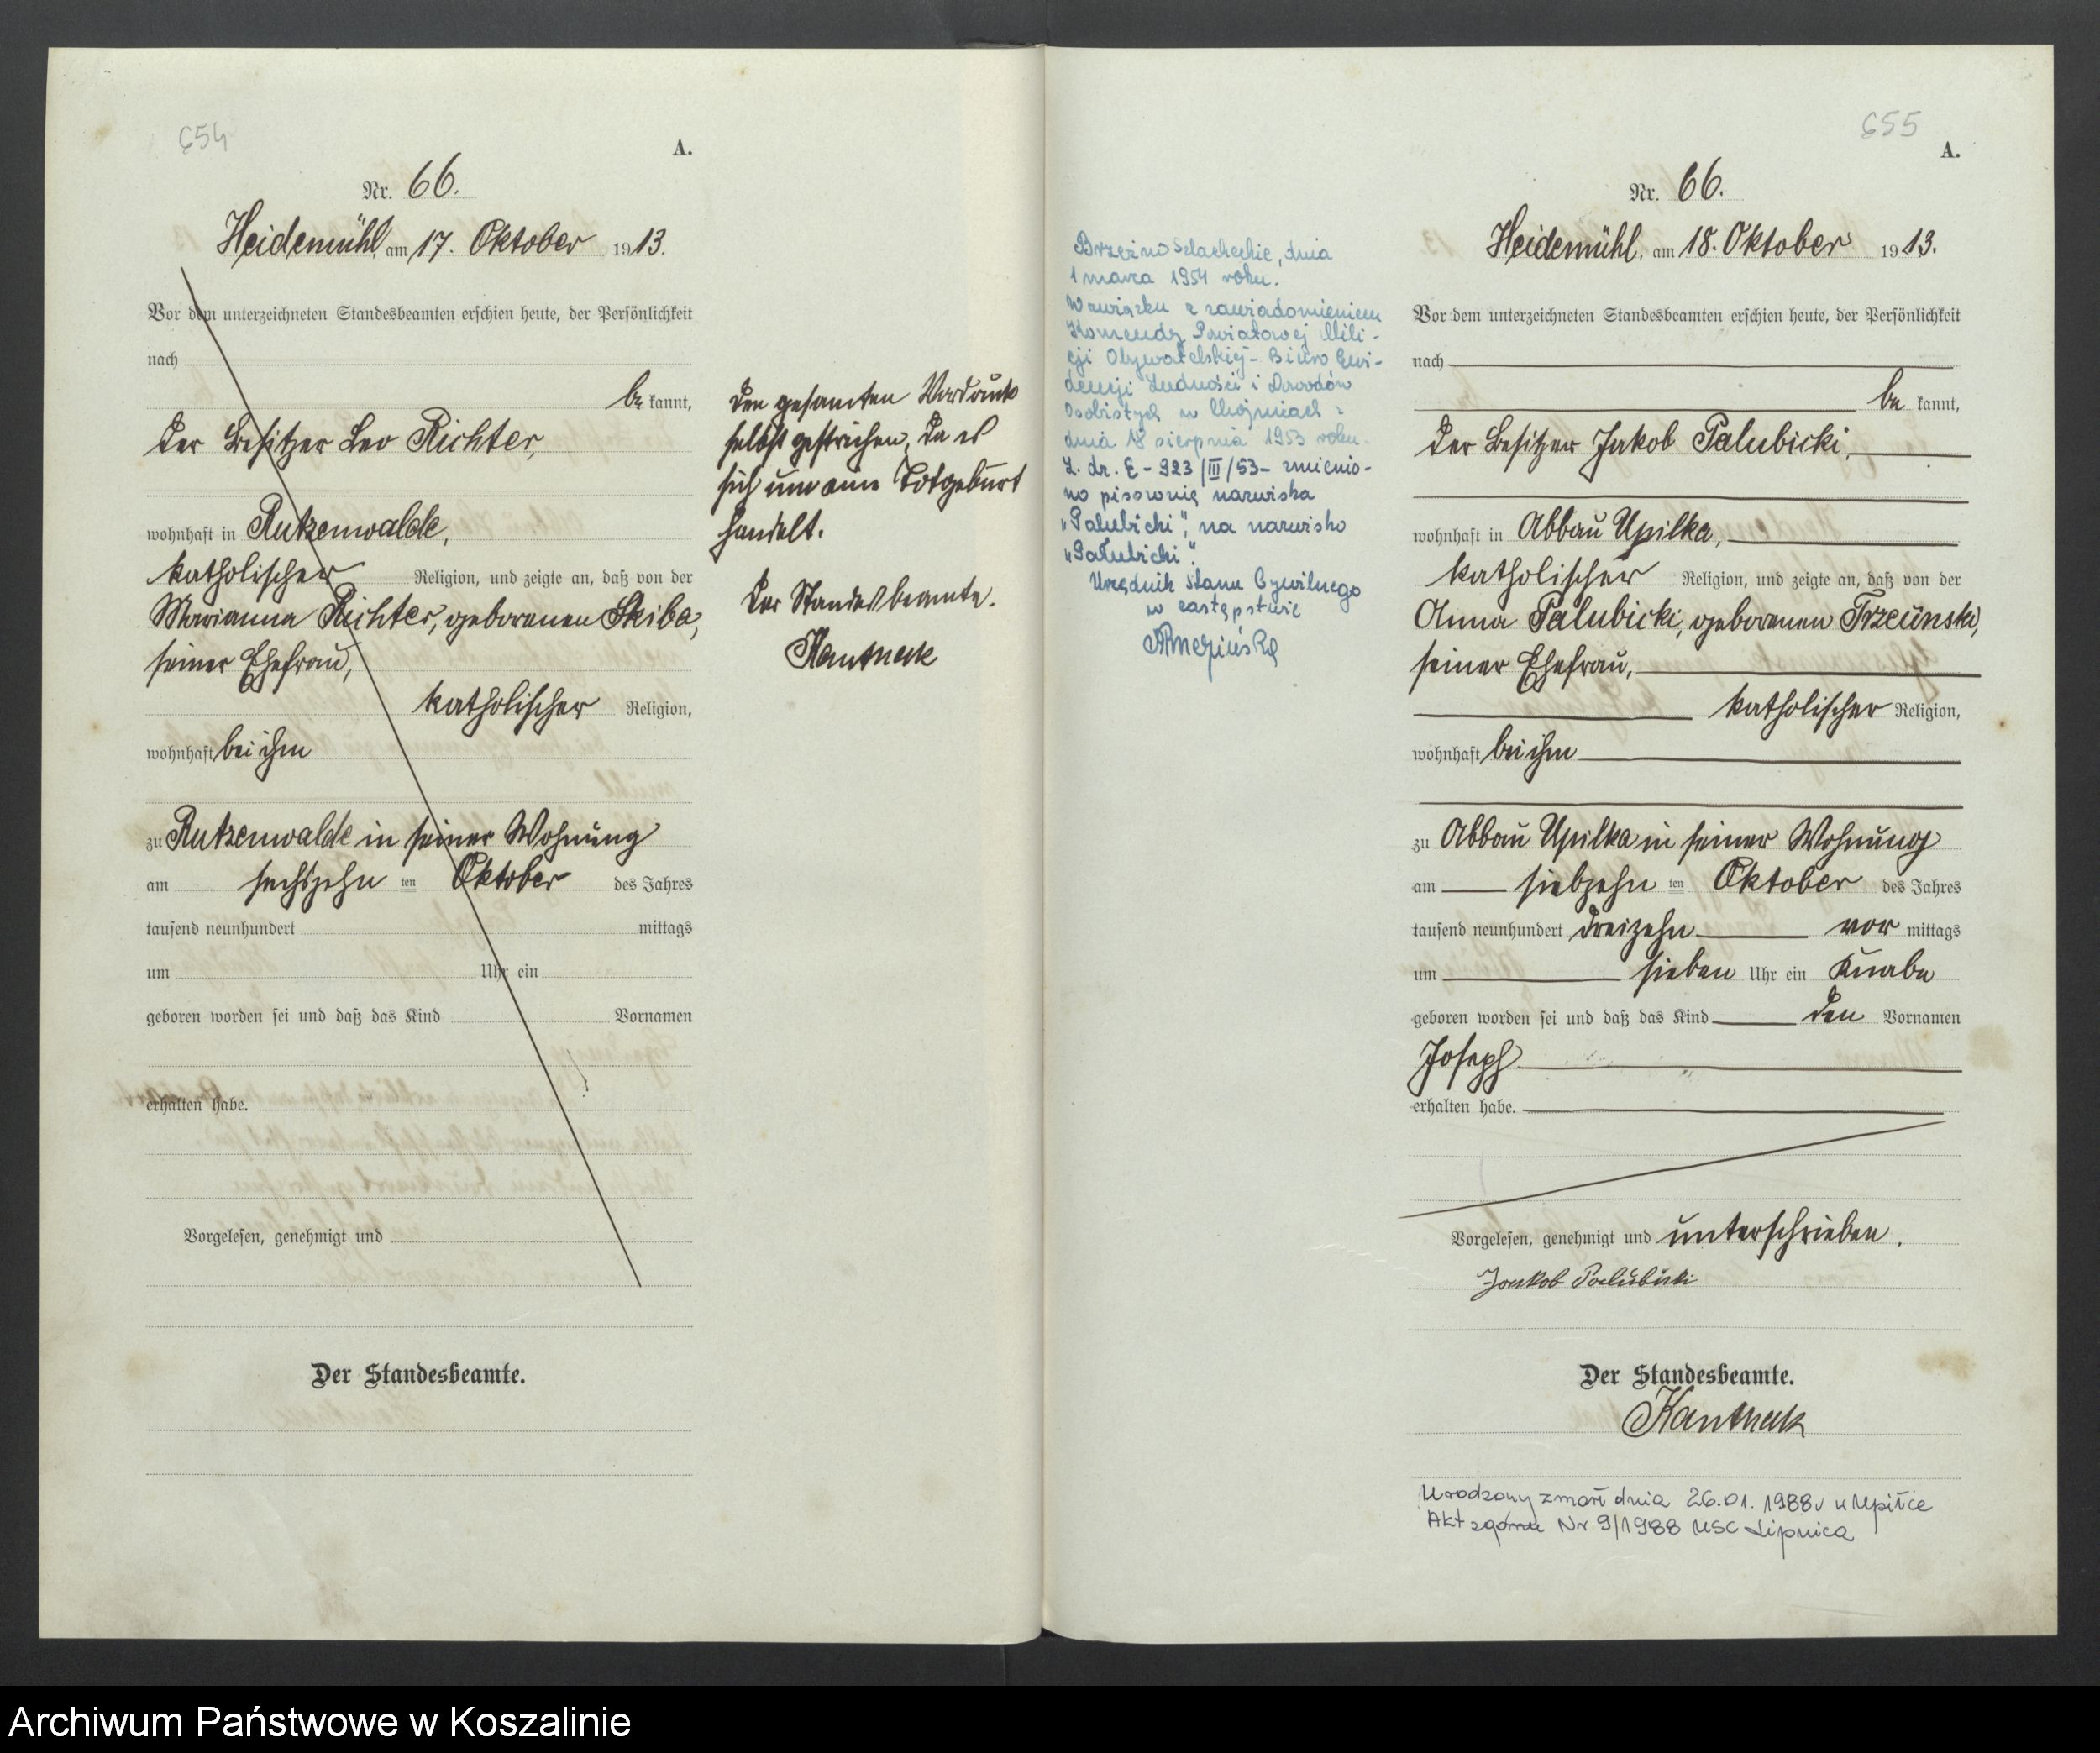 654
A.
Nr. 66.
Heidemühl, am 17. Oktober 1913.
Vor dem unterzeichneten Standesbeamten erschien heute, der Persönlichkeit
nach
be kannt,
der Besitzer Leo Richter,
wohnhaft in Rutzenwalde,
katholischer Religion, und zeigte an, daß von der
Marianna Richter, geborenen Skiba,
seiner Ehefrau,
katholischer Religion,
wohnhaft bei ihm
zu Rutzenwalde in seiner Wohnung
am sechszehn ten Oktober des Jahres
tausend neunhundert mittags
um Uhr ein
geboren worden sei und daß das Kind Vornamen
erhalten habe.
Vorgelesen, genehmigt und
Der Standesbeamte.
Den gesamten Vordruck
selbst gestrichen, da es
sich um eine Totgeburt
handelt.
Der Standesbeamte.
Kanthack
Brzeźno Szlacheckie, dnia
1 marca 1954 roku.
W związku z zawiadomieniem
Komendy Powiatowej Mili-
cji Obywatelskiej - Biuro Ewi-
dencji Ludności i Dowodów
Osobistych w Chojnicach z
dnia 18 sierpnia 1953 roku
L. dz. E - 923/III/53 - zmienio-
no pisownię nazwiska
"Palubicki", na nazwisko
"Pałubicki".
Urzędnik Stanu Cywilnego
w zastępstwie
655
A.
Nr. 66.
Heidemühl, am 18. Oktober 1913.
Vor dem unterzeichneten Standesbeamten erschien heute, der Persönlichkeit
nach
be kannt,
der Besitzer Jakob Palubicki,
wohnhaft in Abbau Upilka,
katholischer Religion, und zeigte an, daß von der
Anna Palubicki, geborenen Trzeinski,
seiner Ehefrau,
katholischer Religion,
wohnhaft bei ihm
zu Abbau Upilka in seiner Wohnung
am siebzehn ten Oktober des Jahres
tausend neunhundert dreizehn vor mittags
um sieben Uhr ein Knabe
geboren worden sei und daß das Kind den Vornamen
Joseph
erhalten habe.
Vorgelesen, genehmigt und unterschrieben.
Jakob Palubicki
Der Standesbeamte.
Kanthack
Urodzony zmarł dnia 26.01.1988r w Upiłce
Akt zgonu Nr 9/1988 USC Lipnica
Archiwum Państwowe w Koszalinie